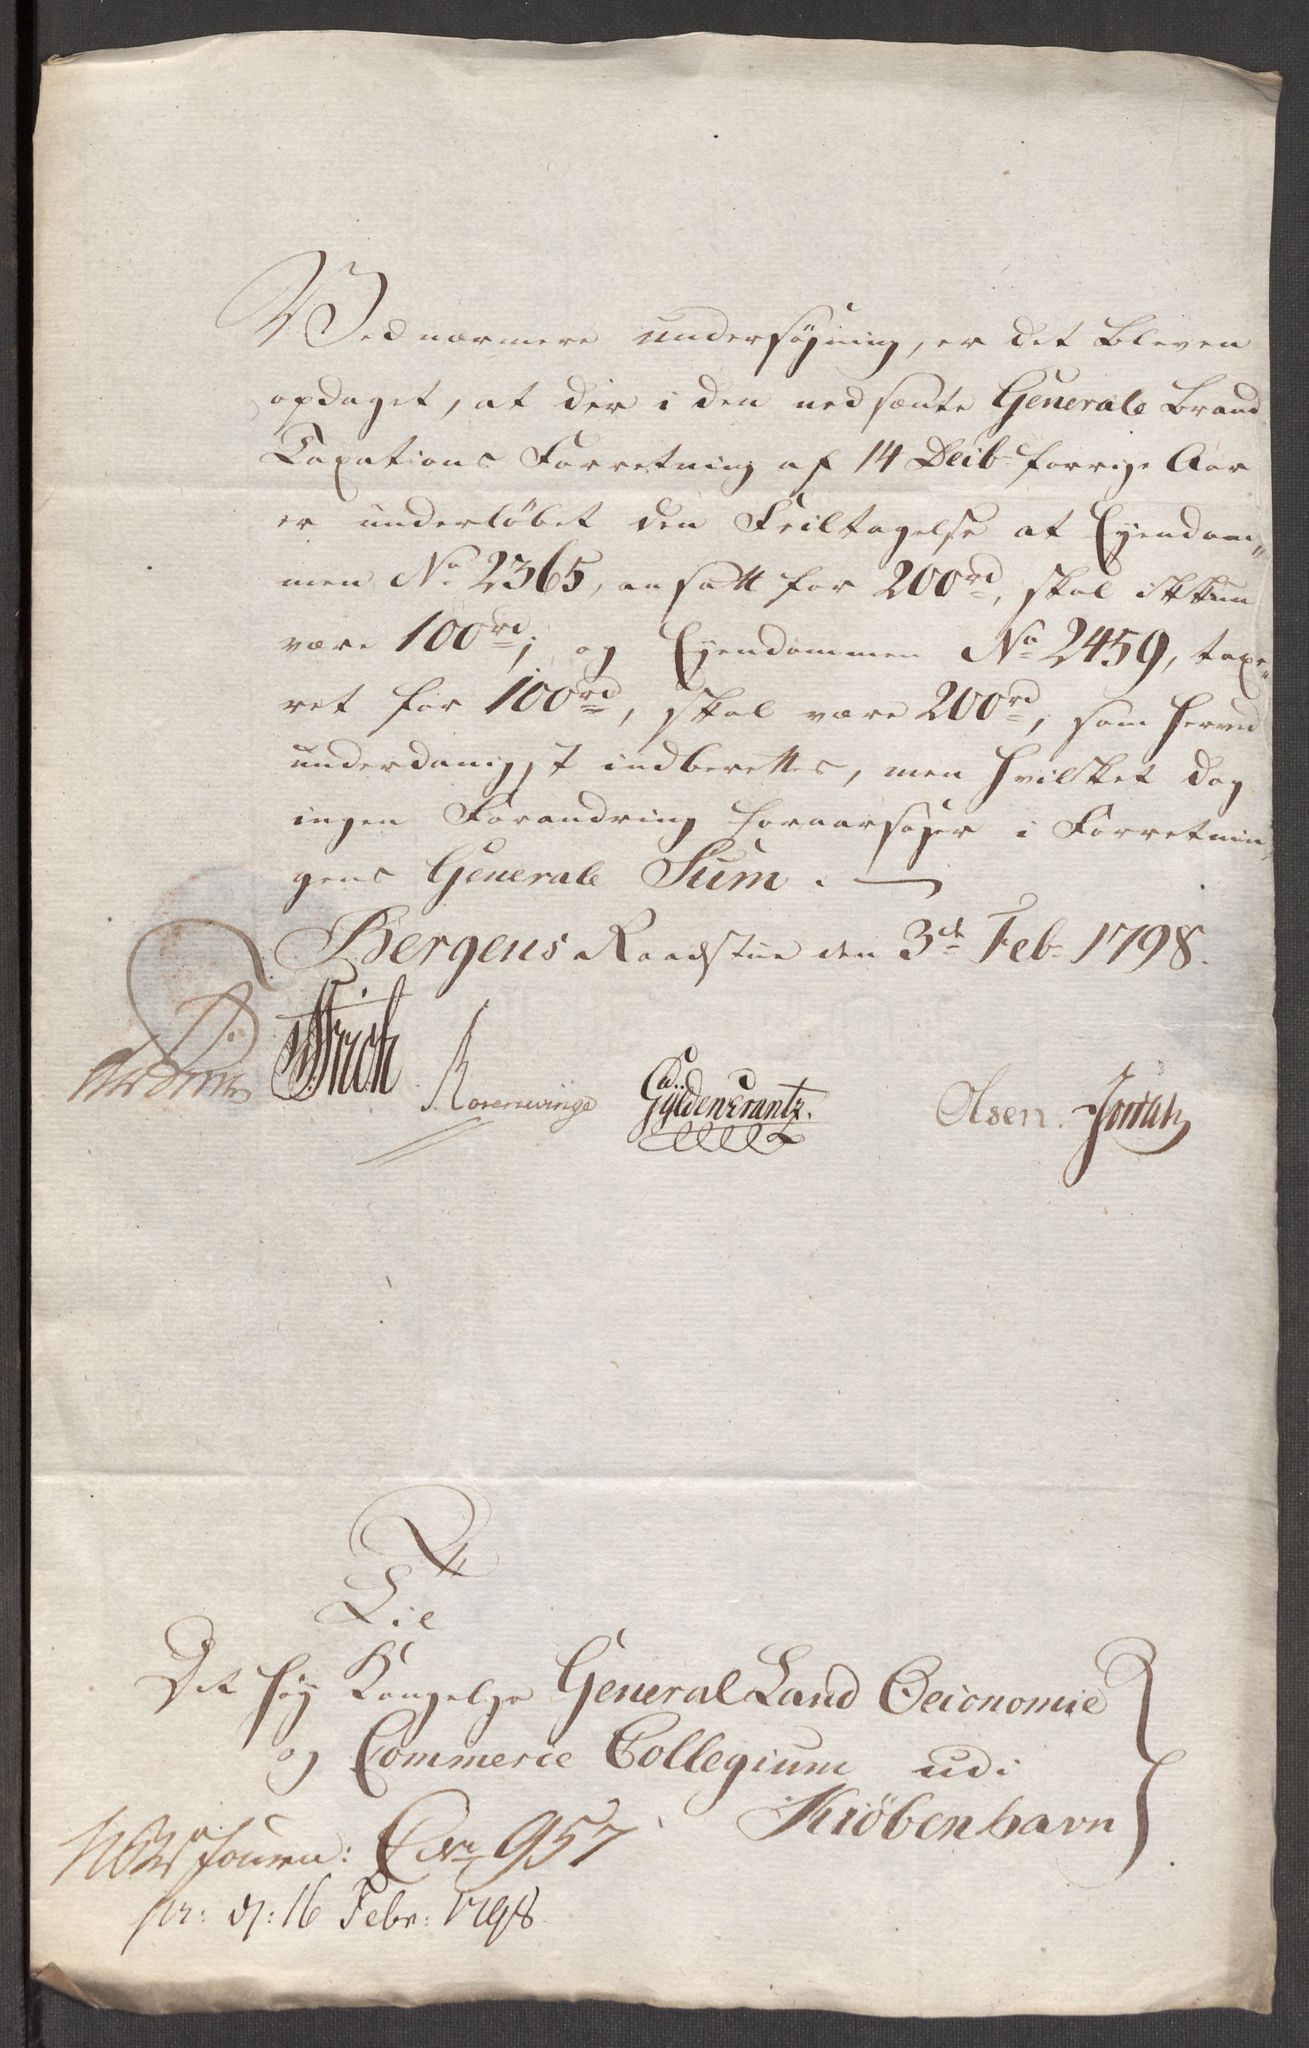 Ved nærmere undersøgning, er det bleven
opdaget, at der i den nedsænte Generale Brand
Taxations Forretning af 14 Decbr forrige Aar
er underløbet den Feiltagelse at Eyendom„
men No 2365, ansatt for 200rd, skal ikkun
være 100rd; og Eyendommen No 2459, taxe„
ret for 100rd, skal være 200rd; som herved
underdanigst indberettes, men hvilket dog
ingen Forandring foraarsager i Forretnin„
gens Generale Sum. —
Bergens Raadstue den 3de Feb. 1798.
Frich Rosenvinge Gyldenkrantz. Olsen. Jonah
Til
Det høy Kongelige General Land Oeconomie
og Commerce Collegium udi
Kiöbenhavn
Journ: No 957
pr: d: 16 Febr: 1798.